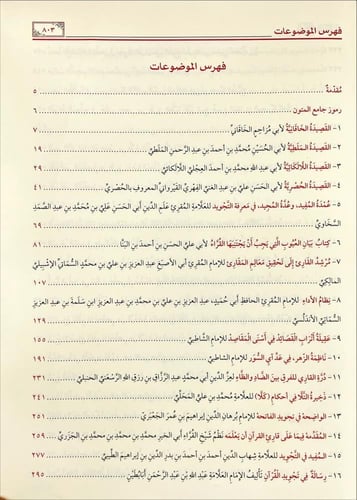 فهرس الموضوعات
٨٠٣
فهرس الموضوعات
مُقدّمةٌ ٥
رموز جامع المتون ٦
١- القَصِيدَةُ الخَاقَانِيَّةُ لأبي مُزَاحِمٍ الخَاقَانِيِّ ٧
٢- القَصِيدَةُ المَلَطِيَّةُ لأبي الحُسَيْنِ مُحَمَّدِ بنِ أحمدَ بنِ عبدِ الرَّحمنِ المَلَطِيِّ ١٩
٣- القَصِيدَةُ اللَّالَكَائِيَّةُ لأبي عبدِ اللهِ محمدِ بنِ أحمدَ العِجْلِيِّ اللَّالَكَائِيِّ ٢٩
٤- القَصِيدَةُ الحُصْرِيَّةُ لأبي الحَسَنِ عليِّ بنِ عبدِ الغَنِيِّ الفِهْرِيِّ القَيْرَوَانِيِّ المعروفِ بالحُصْرِيِّ ٤١
٥- عُمْدَةُ المُفِيدِ، وعُدَّةُ المُجِيدِ، في مَعرِفَةِ التَّجْوِيدِ للعلَّامةِ المُقرِئِ عَلَمِ الدِّينِ أبي الحَسَنِ عَلِيِّ بنِ مُحمَّدِ بنِ عبدِ الصَّمَدِ
السَّخَاوِيِّ ٦٧
٦- كِتَابُ بَيَانِ العُيُوبِ الَّتِي يَجِبُ أَنْ يَجْتَنِبَهَا القُرَّاءُ لأبي عليٍّ الحَسَنِ بنِ أحمدَ بنِ البَنَّا ٨١
٧- مُرْشِدُ القَارِئِ إلَى تَحْقِيقِ مَعَالِمِ المَقَارِئِ للإمامِ المُقرِئِ أبي الأَصبَغِ عبدِ العزيزِ بنِ عليِّ بنِ محمَّدٍ السُّمَاتِيِّ الإشْبِيلِيِّ
المَالِكِيِّ ١٠٧
٨- نِظَامُ الأَدَاءِ للإمامِ المُقرِئِ الحافظِ أبي حُمَيدٍ، عبدِ العزيزِ بنِ عليِّ بنِ محمدِ بنِ عبدِ العزيزِ ابنِ سَلَمةَ بنِ عبدِ العزيزِ
السُّمَاتِيِّ الأندَلُسِيِّ ١٢٩
٩- عَقِيلَةُ أَتْرَابِ القَصَائِدِ فِي أَسْنَى المَقَاصِدِ للإمامِ الشَّاطبيِّ ١٥٥
١٠- نَاظِمَةُ الزَّهرِ، فِي عَدِّ آيِ السُّوَرِ للإمامِ الشَّاطبيِّ ١٩١
١١- دُرَّةُ القَارِي للفرقِ بينَ الضَّادِ والظَّاءِ لِعِزِّ الدِّينِ أبي محمَّدٍ عبدِ الرَّزَّاقِ بنِ رِزقِ اللهِ الرَّسْعَنِيِّ الحنبليِّ ٢٣١
١٢- ذَخِيرَةُ التَّلَّا فِي أَحْكَامِ (كَلَّا) للعلَّامةِ محمَّدِ بنِ عليٍّ المَحَلِّيِّ ٢٤١
١٣- الوَاضِحَةُ فِي تجويدِ الفاتِحةِ للإمامِ بُرهانِ الدِّينِ إبراهيمَ بنِ عُمرَ الجَعْبَرِيِّ ٢٥١
١٤- المُقدِّمةُ فِيمَا عَلَى قَارِئِ القرآنِ أَن يَعْلَمَه نَظمُ شَيْخِ القُرَّاءِ أبي الخيرِ محمدِ بنِ محمَّدِ بنِ محمَّدِ بنِ الجَزَرِيِّ ٢٥٩
١٥- المُفِيدُ فِي التَّجْوِيدِ للعلَّامةِ شِهَابِ الدِّينِ أحمدَ بنِ أحمدَ بنِ بدرِ الدِّينِ بنِ إبراهيمَ الطِّيبيِّ ٢٧٧
١٦- رِسَالةٌ فِي تَجْوِيدِ القُرآنِ تأليفُ الإمامِ العَلَّامةِ عَبدِ اللهِ بنِ عَبْدِ الرَّحْمَنِ أَبَابْطَيْنِ ٢٩٥